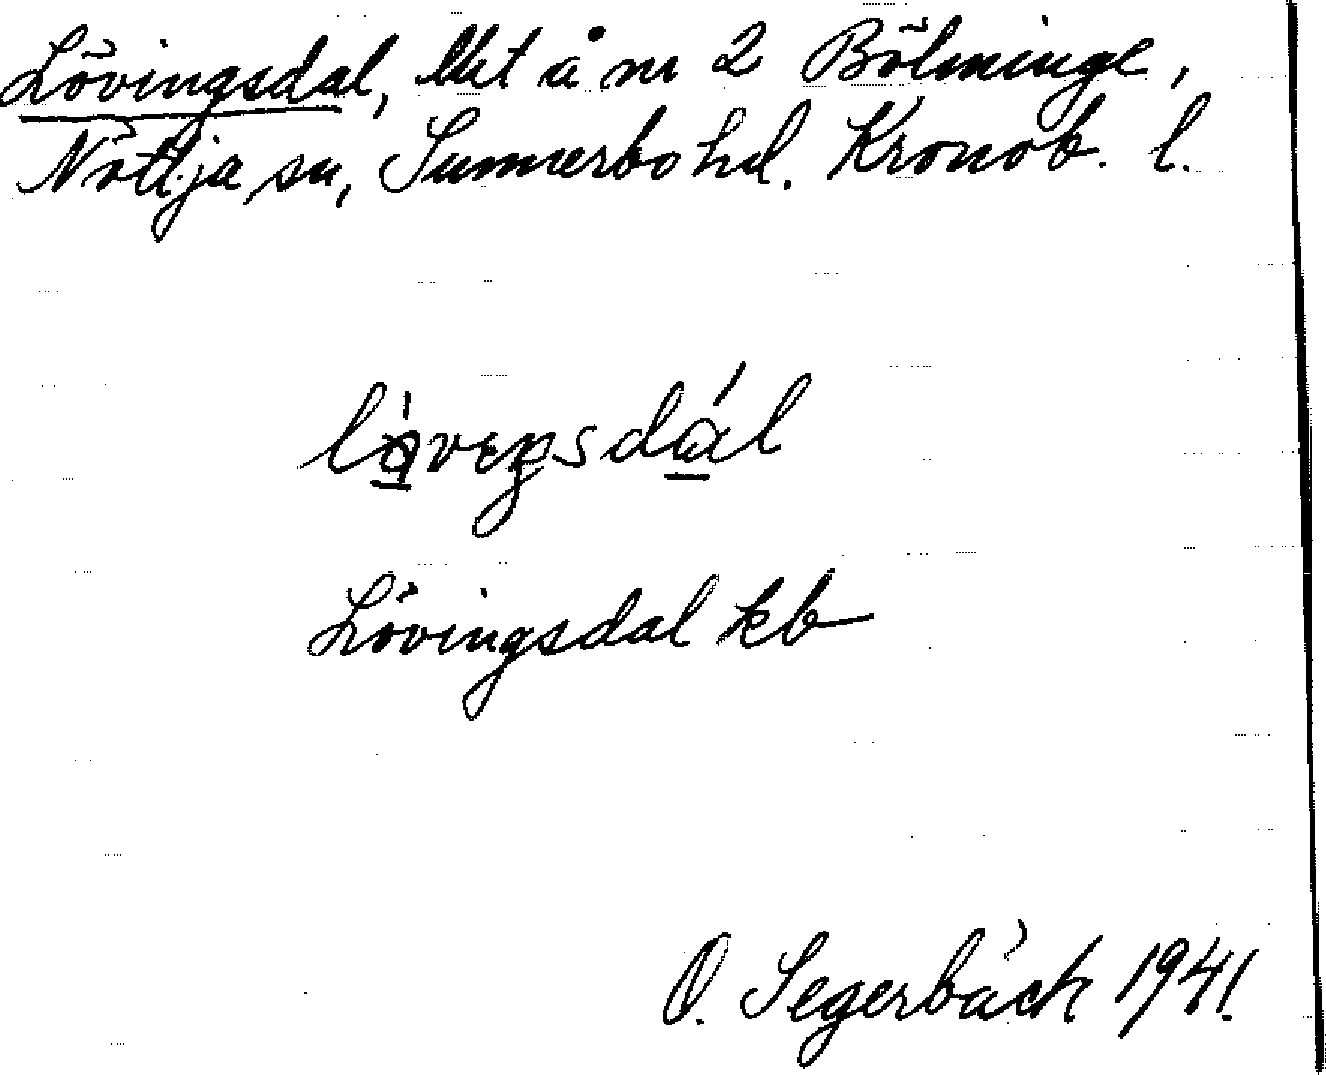 Lövingsdal, lht å nr 2 Bölminge,
Nöttja sn, Sunnerbo hd. Kronob. l.
Lövingsdal kb
O. Segerbäck 1941.